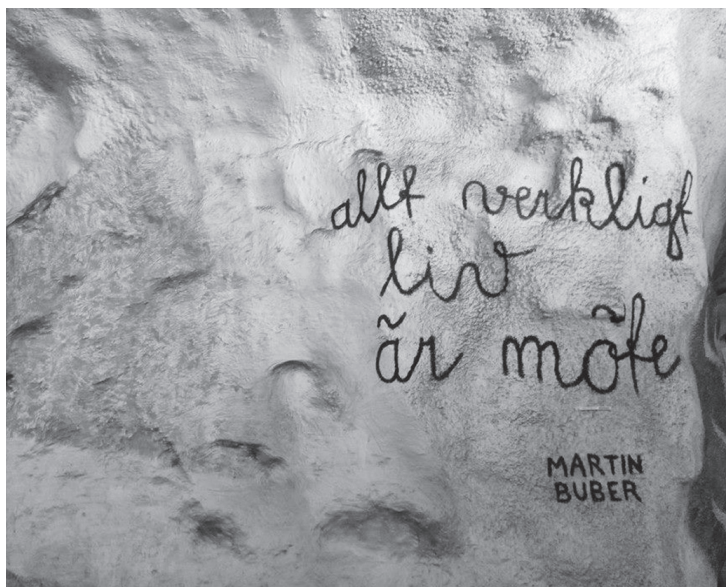 allt verkligt
liv
är möte
MARTIN
BUBER